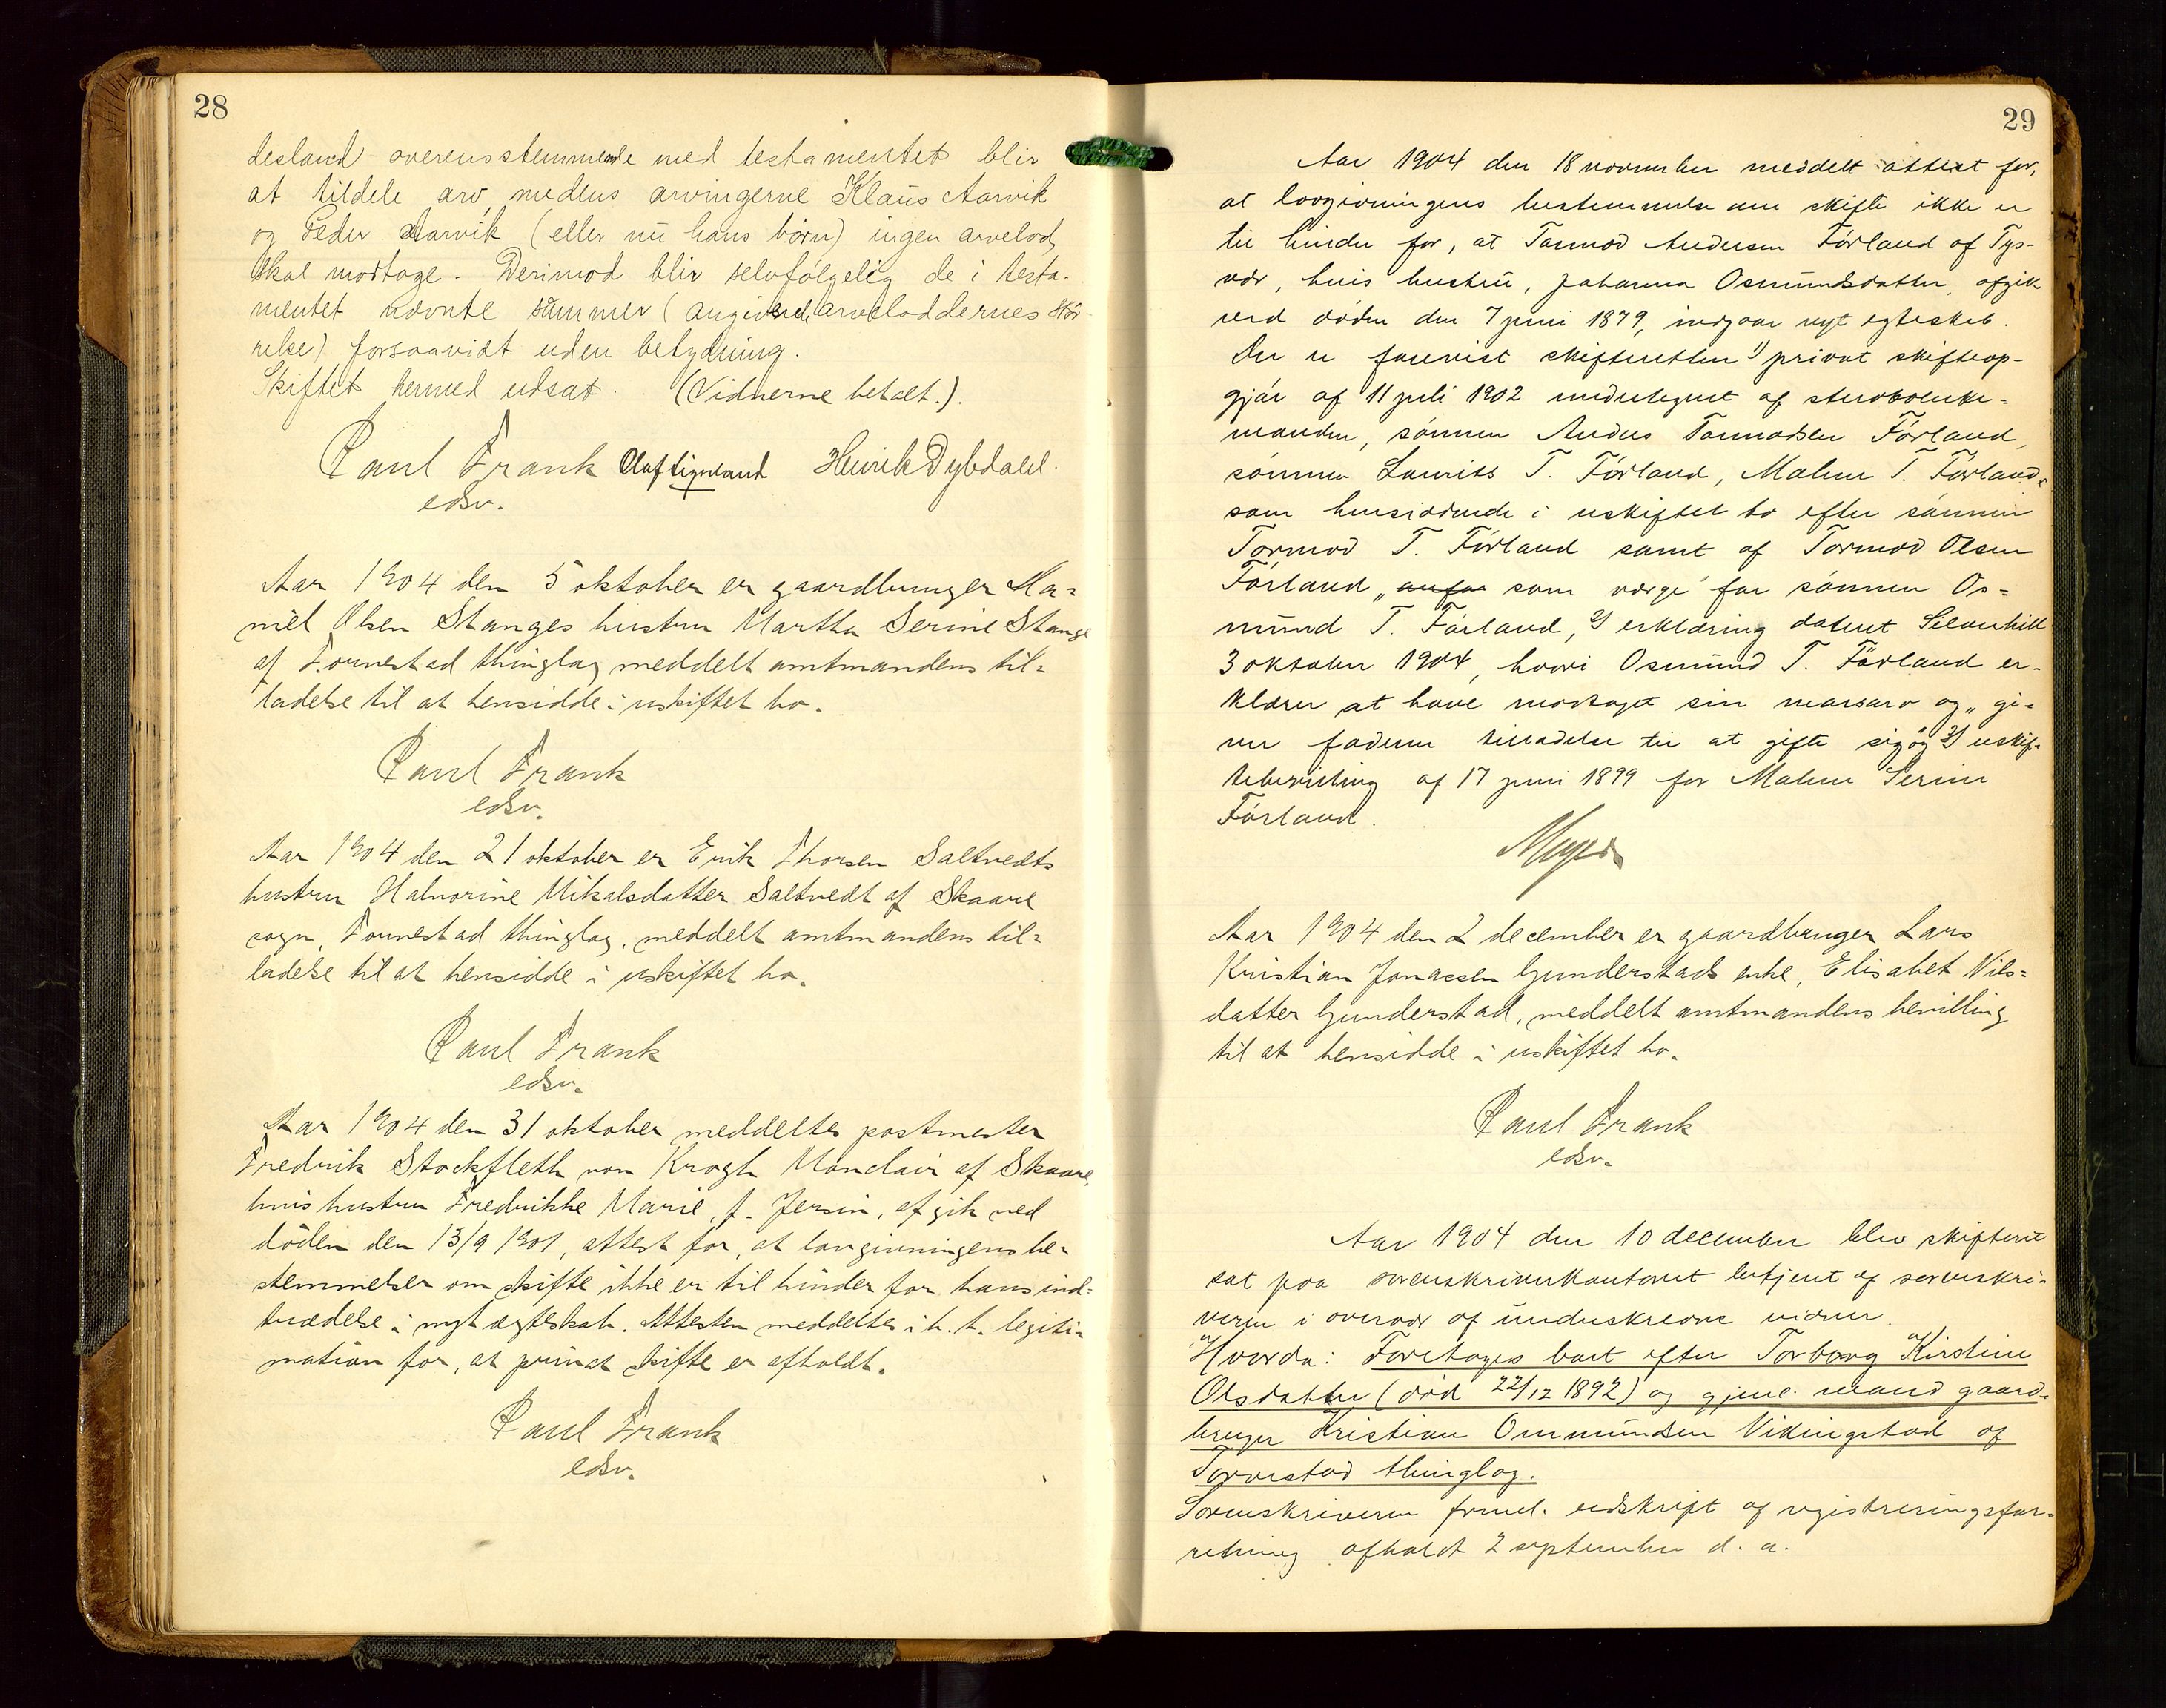 28
desland overensstemmende med testamentet blir
at tildele arv medens arvingerne Klaus Aarvik
og Peder Aarvik (eller nu hans børn) ingen arvelod
skal modtage. Derimod blir selvfølgelig de i testa-
mentet nævnte summer (angivende arveloddernes stør-
relse) forsaavidt uden betydning.
Skiftet hermed udsat. (Vidnerne betalt.).
Paul Frank Olaf Lignland Henrik Dybdahl.
edsv.
Aar 1904 den 5 oktober er gaardbruger Ha-
niel Olsen Stanges hustru Martha Serine Stange
af Torvestad thinglag meddelt amtmandens til-
ladelse til at hensidde i uskiftet bo.
Paul Frank
edsv.
Aar 1904 den 21 oktober er Erik Thorsen Saltvedts
hustru Halvorine Mikalsdatter Saltvedt af Skaare
sogn, Torvestad thinglag, meddelt amtmandens til-
ladelse til at hensidde i uskiftet bo.
Paul Frank
edsv.
Aar 1904 den 31 oktober meddeltes postmester
Fredrik Stockfleth von Krogh Monclair af Skaare,
hvis hustru Fredrikke Marie, f. Jersin, afgik ved
døden den 13/9 1901, attest for, at lovgivningens be-
stemmelser om skifte ikke er til hinder for hans ind-
trædelse i nyt ægteskab. Attesten meddeltes i h. t. legiti-
mation for, at privat skifte er afholdt.
Paul Frank
edsv.
29
Aar 1904 den 18 november meddelt attest for,
at lovgivningens bestemmelse om skifte ikke er
til hinder for, at Tormod Andersen Førland af Tys-
vær, hvis hustru, Johanna Osmundsdatter, afgik
ved døden den 7 juni 1879, indgaar nyt egteskab.
Der er forevist skifteretten 1) privat skifteop-
gjør af 11 juli 1902 undertegnet af sterboenke-
manden, sønnen Andreas Tormodsen Førland,
sønnen Laurits T. Førland, Malene T. Førland,
som hensiddende i uskiftet bo efter sønnen
Tormod T. Førland samt af Tormod Olsen
Førland „anfør som værge" for sønnen Os-
mund T. Førland, 2) erklæring dateret Silverhill
3 oktober 1904, hvori Osmund T. Førland er-
klærer at have modtaget sin morsarv og „gi-
ver faderen tilladelse til at gifte sig" og 3) uskif-
tebevilling af 17 juni 1899 for Malene Serine
Førland.
Meyer
Aar 1904 den 2 december er gaardbruger Lars
Kristian Jonassen Gunderstads enke, Elisabet Nils-
datter Gunderstad, meddelt amtmandens bevilling
til at hensidde i uskiftet bo.
Paul Frank
edsv.
Aar 1904 den 10 december blev skifteret
sat paa sorenskriverkontoret betjent af sorenskri-
veren i overvær af underskrevne vidner.
Hvorda: Foretoges boet efter Torborg Kirstine
Olsdatter (død 22/12 1892) og gjenl. mand gaard-
bruger Kristian Ommundsen Vikingstad af
Torvestad thinglag.
Sorenskriveren freml. udskrift af registreringsfor-
retning afholdt 2 september d. a.